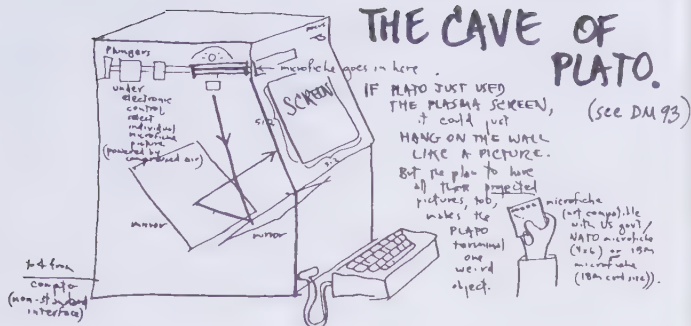 THE CAVE OF
PLATO.
(see DM 93)
Plungers
under
electronic
control
select
individual
microfiche
picture
(powered by
compressed air)
microfiche goes in here.
SCREEN
512
512
mirror
mirror
to & from
computer
(non-standard
interface)
IF PLATO JUST USED
THE PLASMA SCREEN,
it could just
HANG ON THE WALL
LIKE A PICTURE.
But the plan to have
all these projected
pictures, too,
makes the
PLATO
terminal
one
weird
object.
microfiche
(not compatible
with US gov't/
NATO microfiche
(4x6) or IBM
microfiche
(IBM card size)).